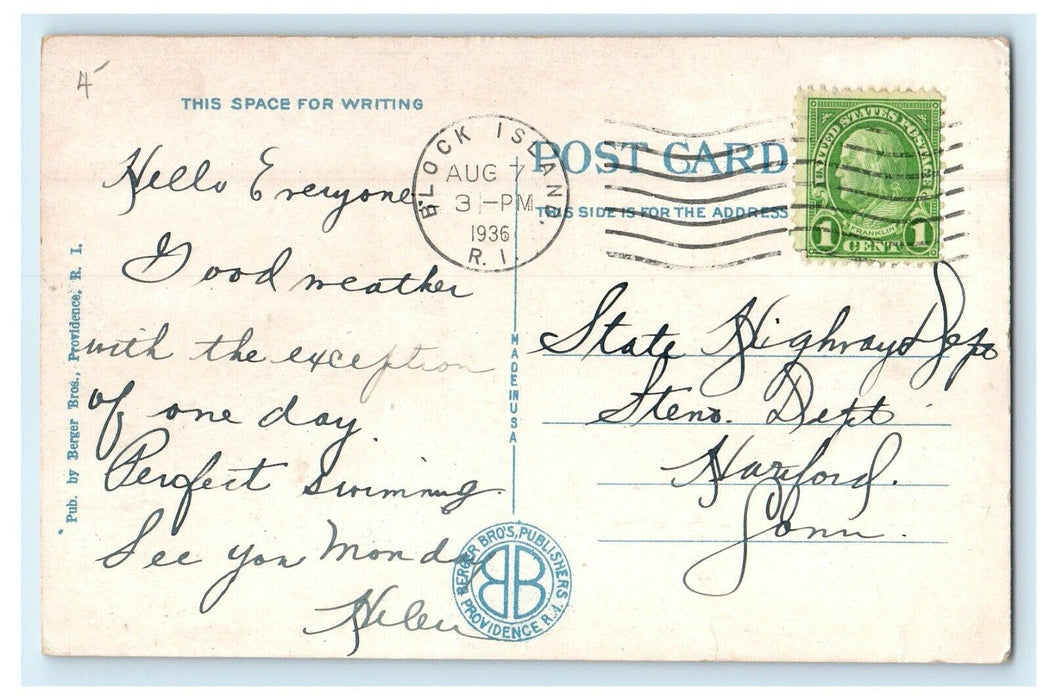 4
THIS SPACE FOR WRITING
Hello Everyone
Good weather
with the exception
of one day.
Perfect swimming.
See you Monday
Helen
Pub. by Berger Bros., Providence, R. I.
BLOCK ISLAND.
AUG 7
3 - PM
1936
R. I.
POST CARD
THIS SIDE IS FOR THE ADDRESS
UNITED STATES POSTAGE
FRANKLIN
1 CENT 1
State Highway Dept
Steno. Dept
Harford.
Conn.
MADE IN USA
BERGER BRO'S, PUBLISHERS
BB
PROVIDENCE R.I.